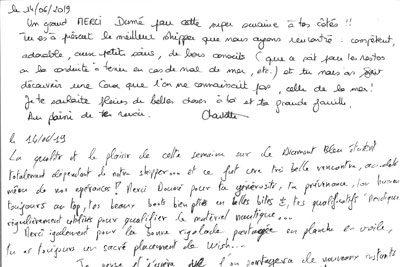 le 14/06/2019
Un grand MERCI Domé pour cette super semaine à tes côtés !!
Tu es à présent le meilleur skipper que nous ayons rencontré : compétent,
adorable, aux petits soins, de bons conseils (que ce soit pour le restos
ou la conduite à tenir en cas de mal de mer, etc.) et tu nous as fait
découvrir une Corse que l'on ne connaissait pas, celle de la mer!
Je te souhaite pleins de belles choses à toi et ta grande famille.
Au plaisir de te revoir.
le 14/06/19
La qualité et le plaisir de cette semaine sur le Diamant Bleu étaient
totalement dépendant de notre skipper... et ce fut une très belle rencontre, au-delà
même de nos espérances! Merci Domé pour ta générosité, ta prévenance, ton humour
toujours au top, tes beaux bouts bien pliés en belles bites, tes qualificatifs
régulièrement utilisés pour qualifier le matériel nautique...
Merci également pour la bonne rigolade partagée en planche à voile,
tu as toujours un sacré placement de
que l'on partagera de nouveaux instants